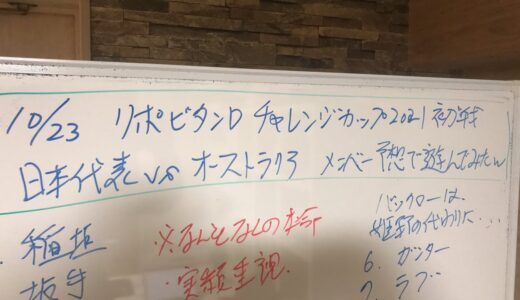 10/23 リポビタンD チャレンジカップ2021 初戦
日本代表 vs オーストラリア メンバー予想で遊んでみたw
稲垣
坂手
※なんとなくの
・実績重視.
バックローは、
姫野の代わりに...
6. ガンター
7. ラブ